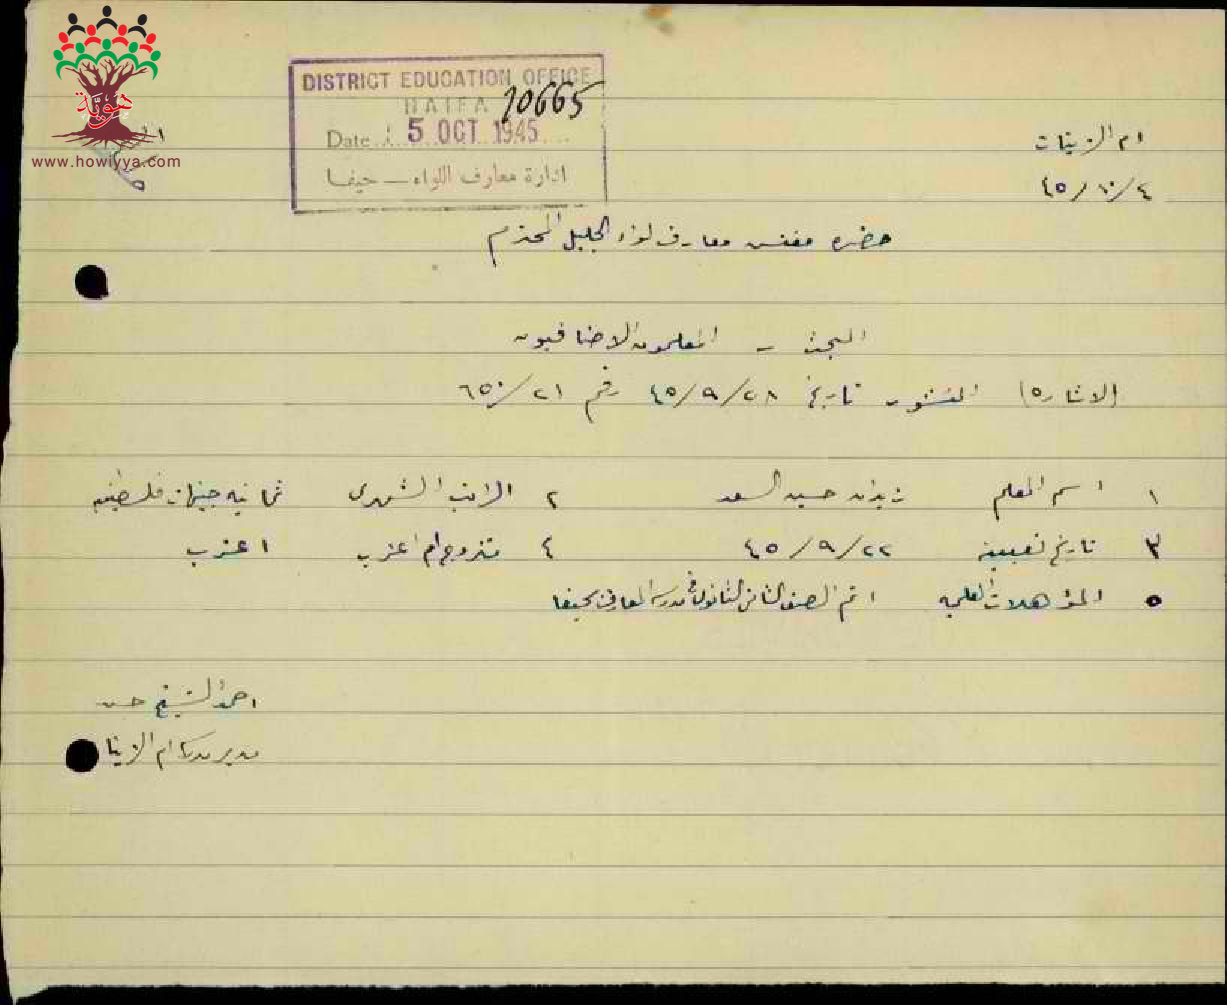 هوية
www.howiyya.com
DISTRICT EDUCATION OFFICE
HAIFA 10665
Date 5 OCT 1945
ادارة معارف اللواء — حيفا
ام الزينات
٤/١٠/٤٥
حضرة مفتش معارف لواء الجليل المحترم
البحث – المعلمون الاضافيون
الاشارة) المنشور تاريخ ٢٨/٩/٤٥ رقم ٢١/٦٥٠
١ اسم المعلم زيدان حسين السعد ٢ الراتب الشهري ثمانية جنيهات فلسطينية
٣ تاريخ تعيينه ٢٢/٩/٤٥ ٤ متزوج ام اعزب اعزب
٥ المؤهلات العلمية اتم الصف الثاني الثانوي في مدرسة المعارف بحيفا
احمد الشيخ حسن
مدير مدرسة ام الزينا